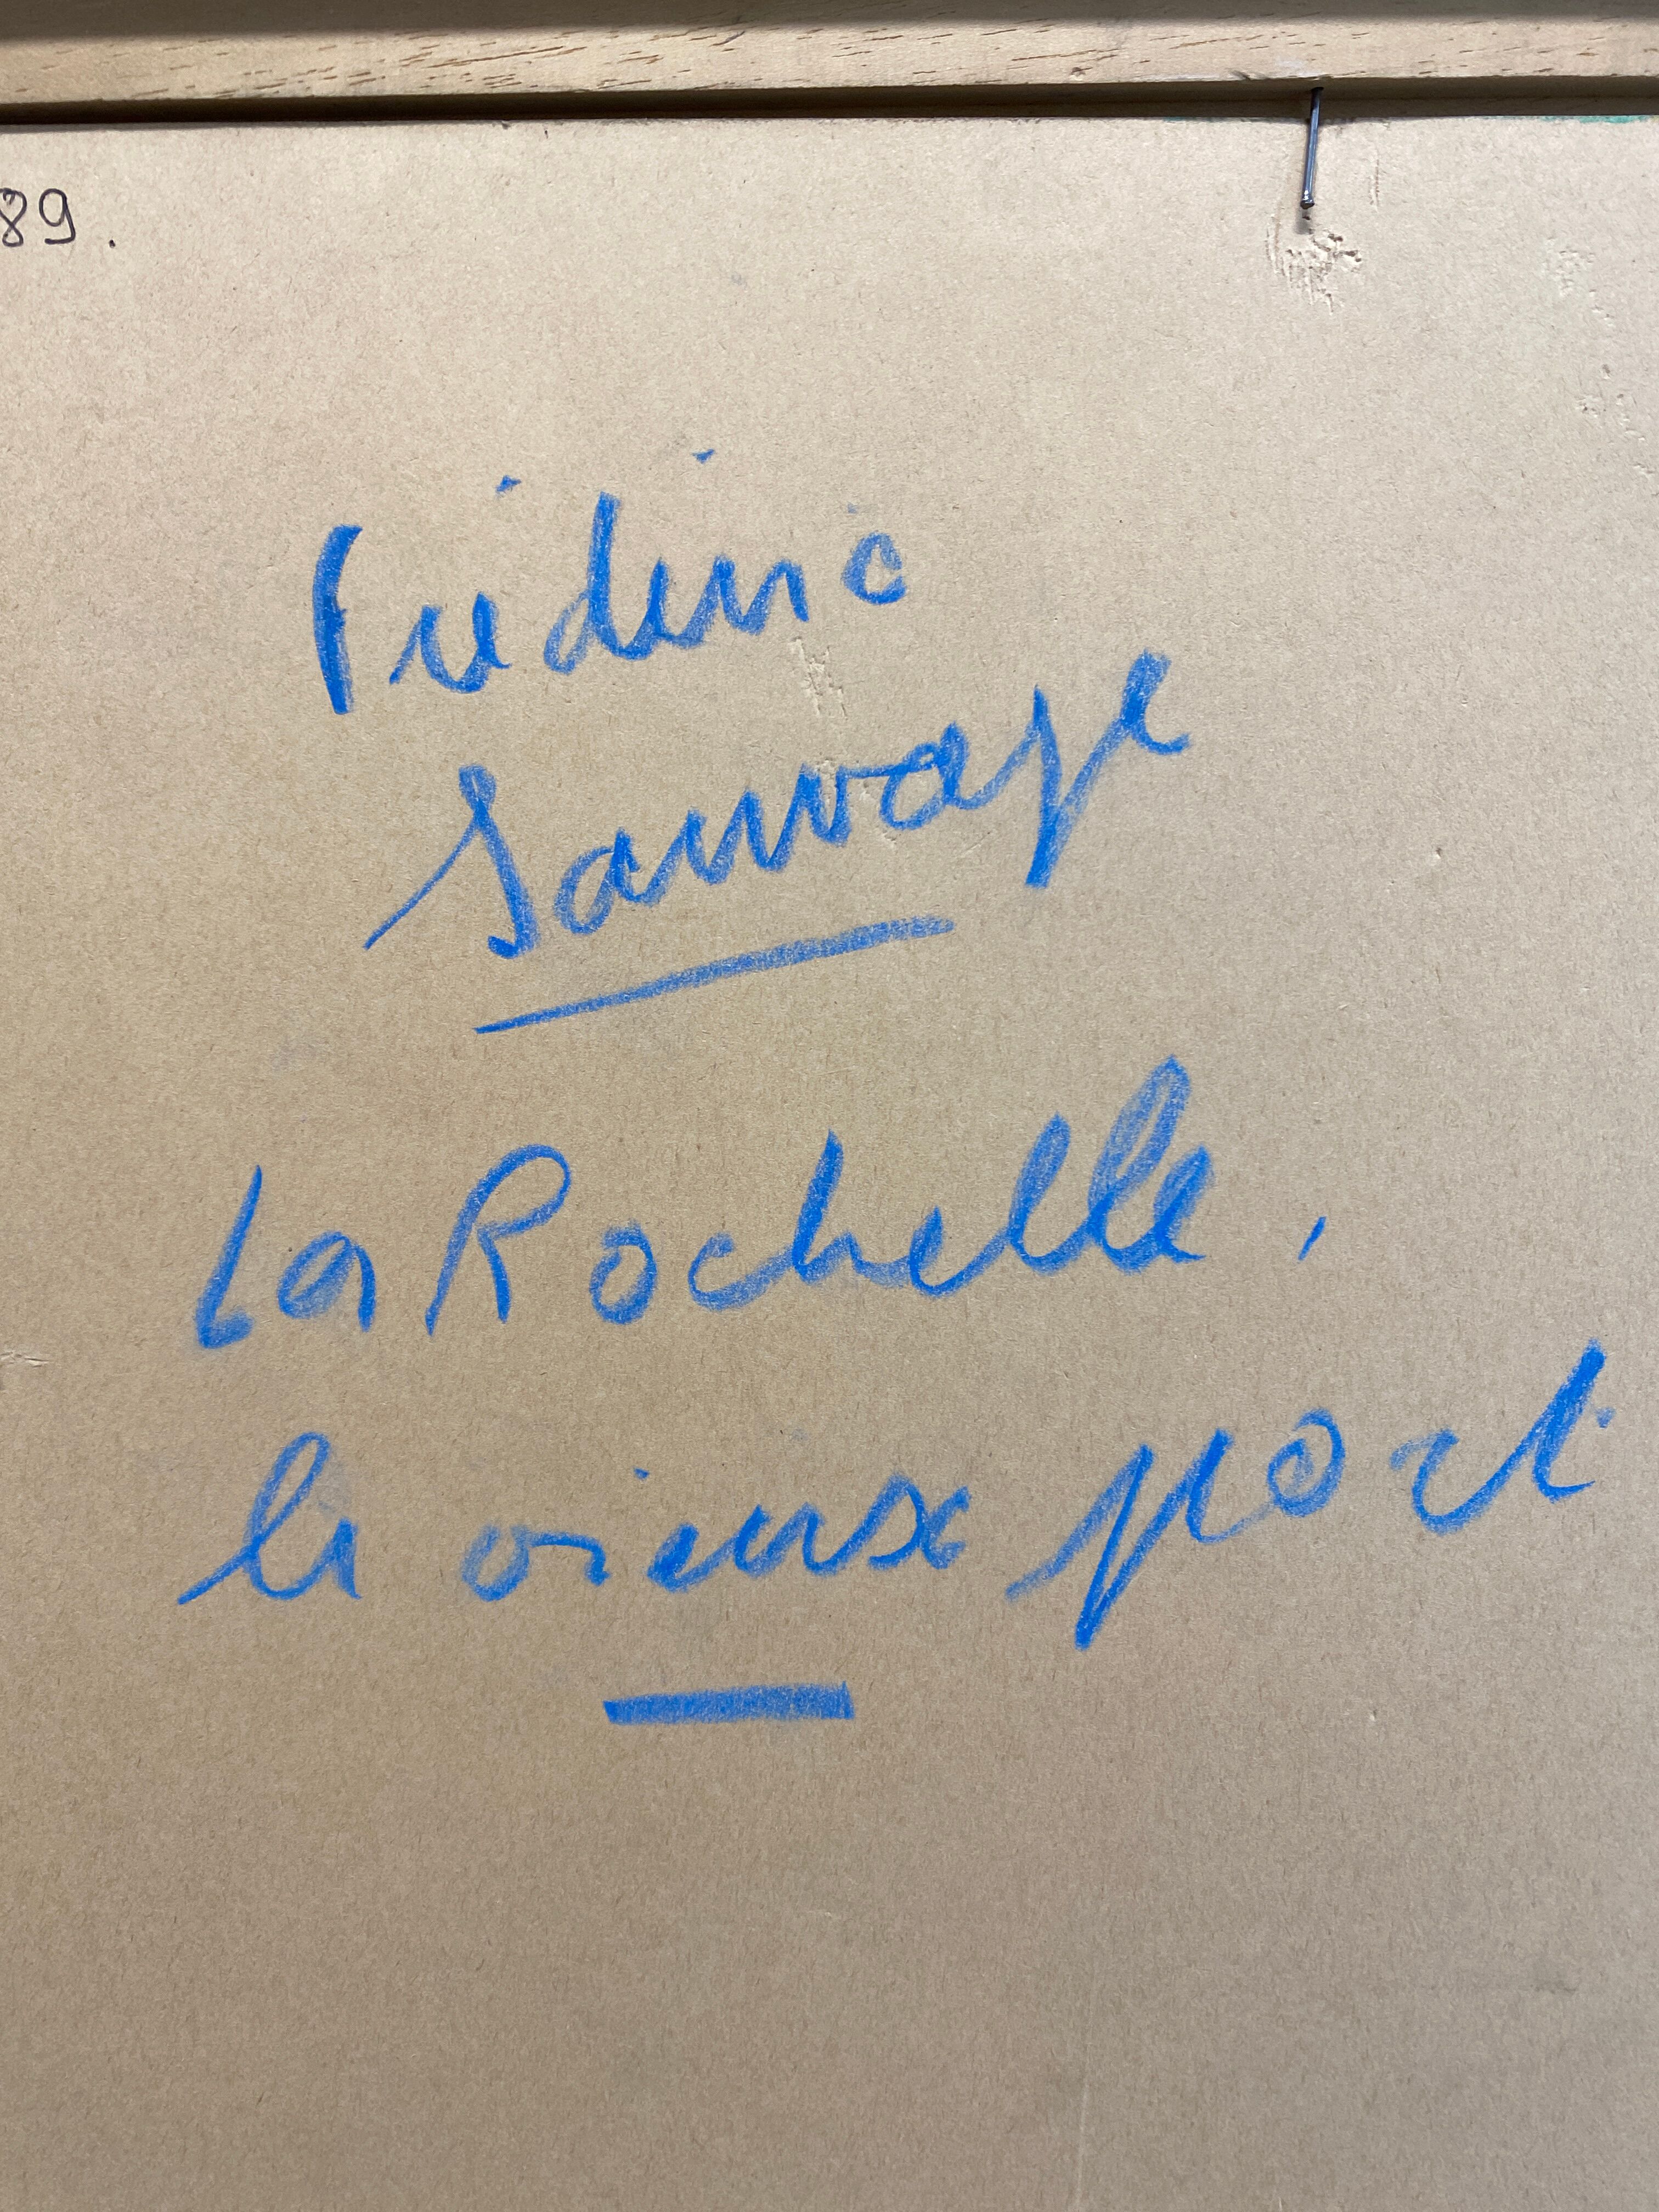 89.
Frédéric
Sauvage
La Rochelle,
le vieux port